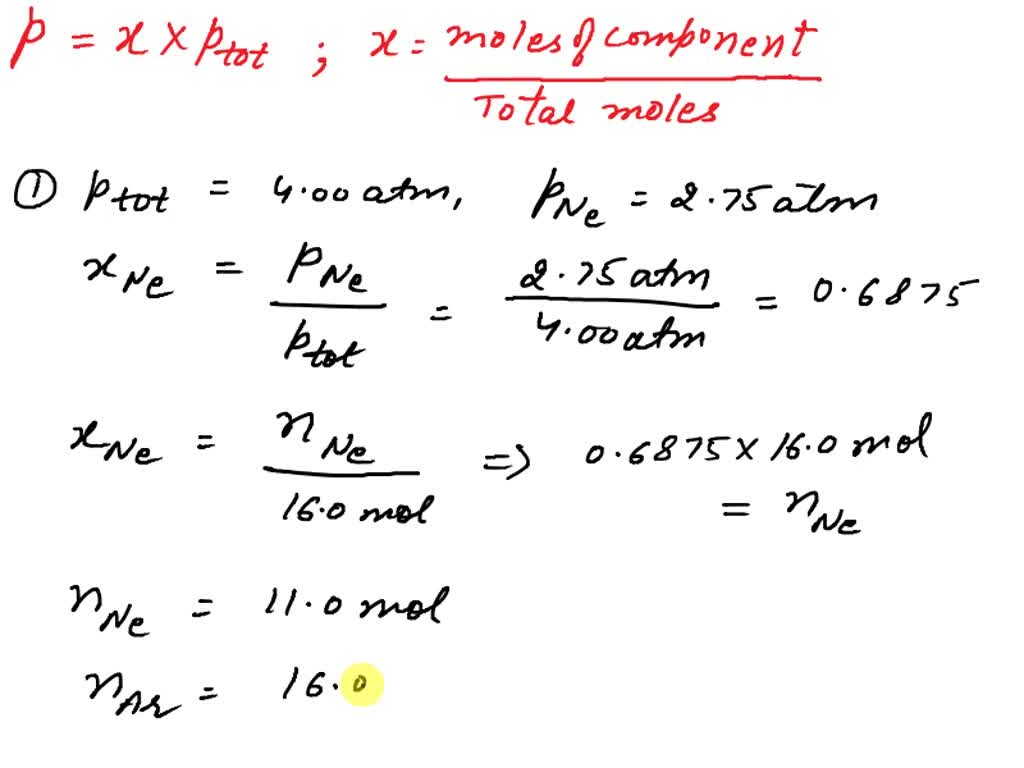 p = x × ptot ; x = moles of component / Total moles
① ptot = 4.00 atm, pNe = 2.75 atm
xNe = pNe / ptot = 2.75 atm / 4.00 atm = 0.6875
xNe = nNe / 16.0 mol => 0.6875 × 16.0 mol
= nNe
nNe = 11.0 mol
nAr = 16.0